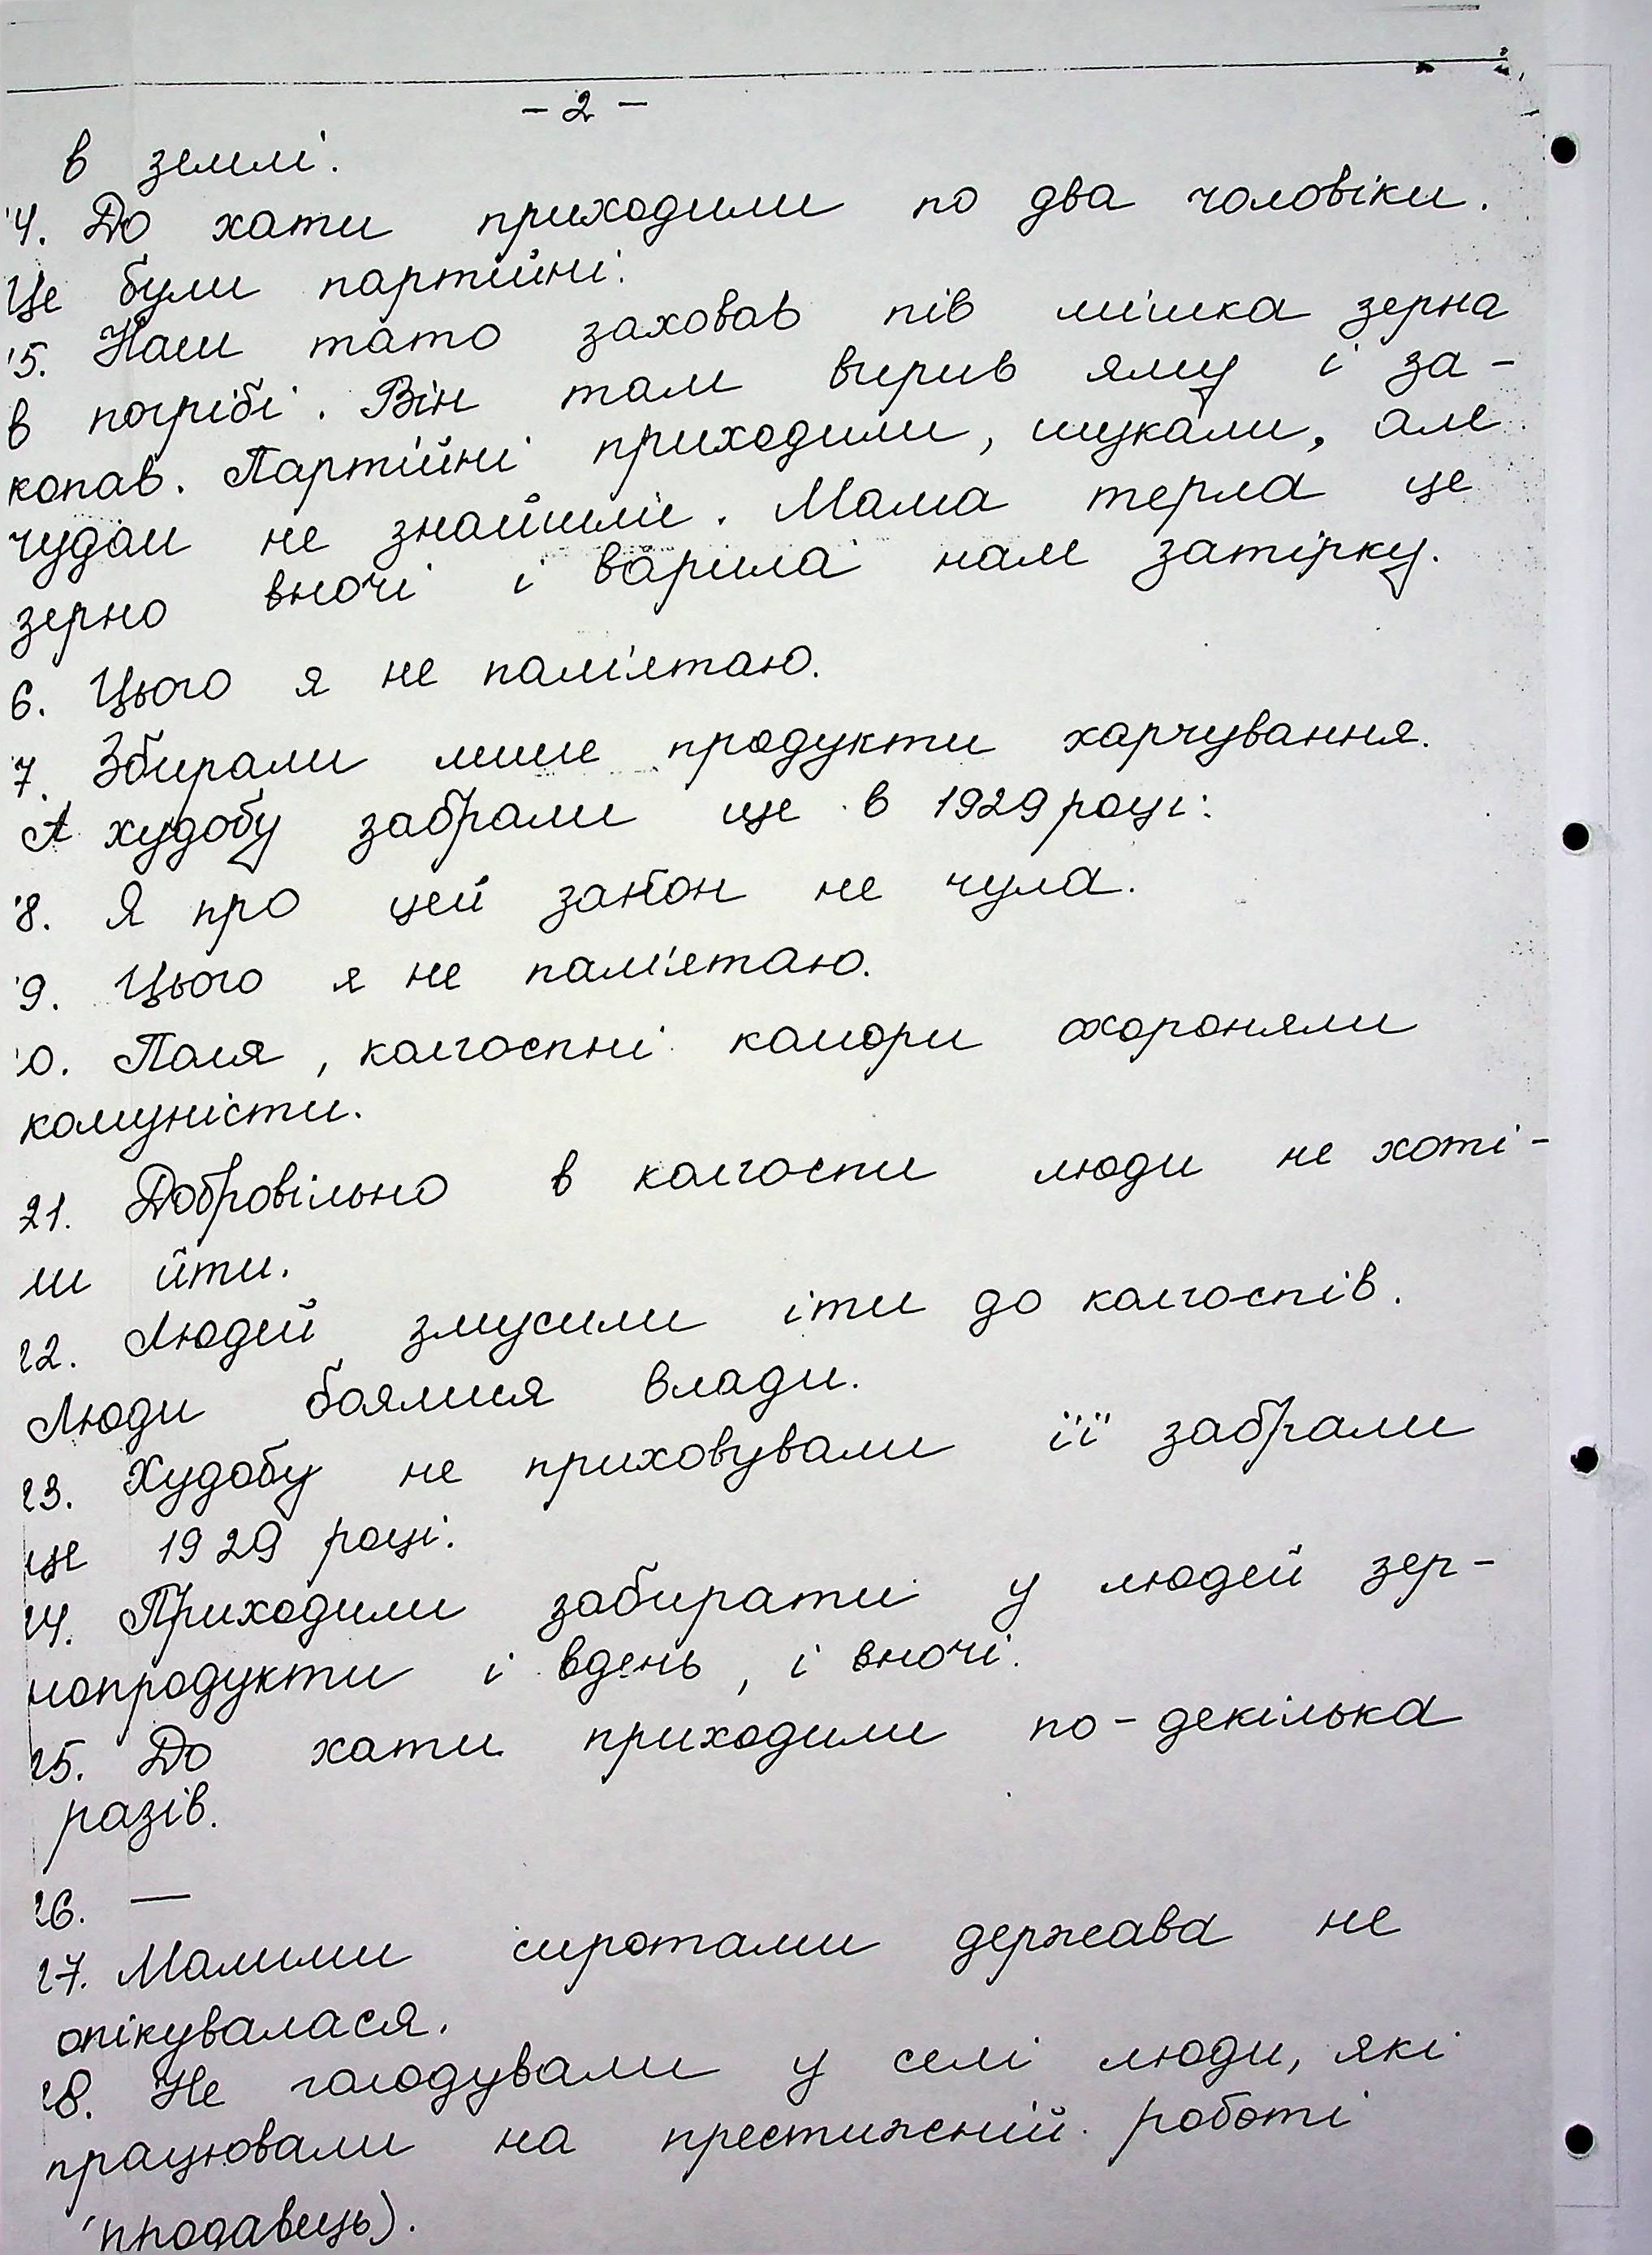 - 2 -
в землі.
14. До хати приходили по два чоловіки.
Це були партійні.
15. Наш тато заховав пів мішка зерна
в погрібі. Він там вирив яму і за-
копав. Партійні приходили, шукали, але
чудом не знайшли. Мама терла це
зерно вночі і варила нам затірку.
6. Цього я не пам'ятаю.
7. Збирали лише продукти харчування.
А худобу забрали ще в 1929 році.
18. Я про цей закон не чула.
19. Цього я не пам'ятаю.
20. Поля, колгоспні комори охороняли
комуністи.
21. Добровільно в колгоспи люди не хоті-
ли йти.
22. Людей змусили іти до колгоспів.
Люди боялися влади.
23. Худобу не приховували її забрали
ще 1929 році.
24. Приходили забирати у людей зер-
нопродукти і вдень, і вночі.
25. До хати приходили по-декілька
разів.
26. —
27. Малими сиротами держава не
опікувалася.
28. Не голодували у селі люди, які
працювали на престижній роботі
(продавець).